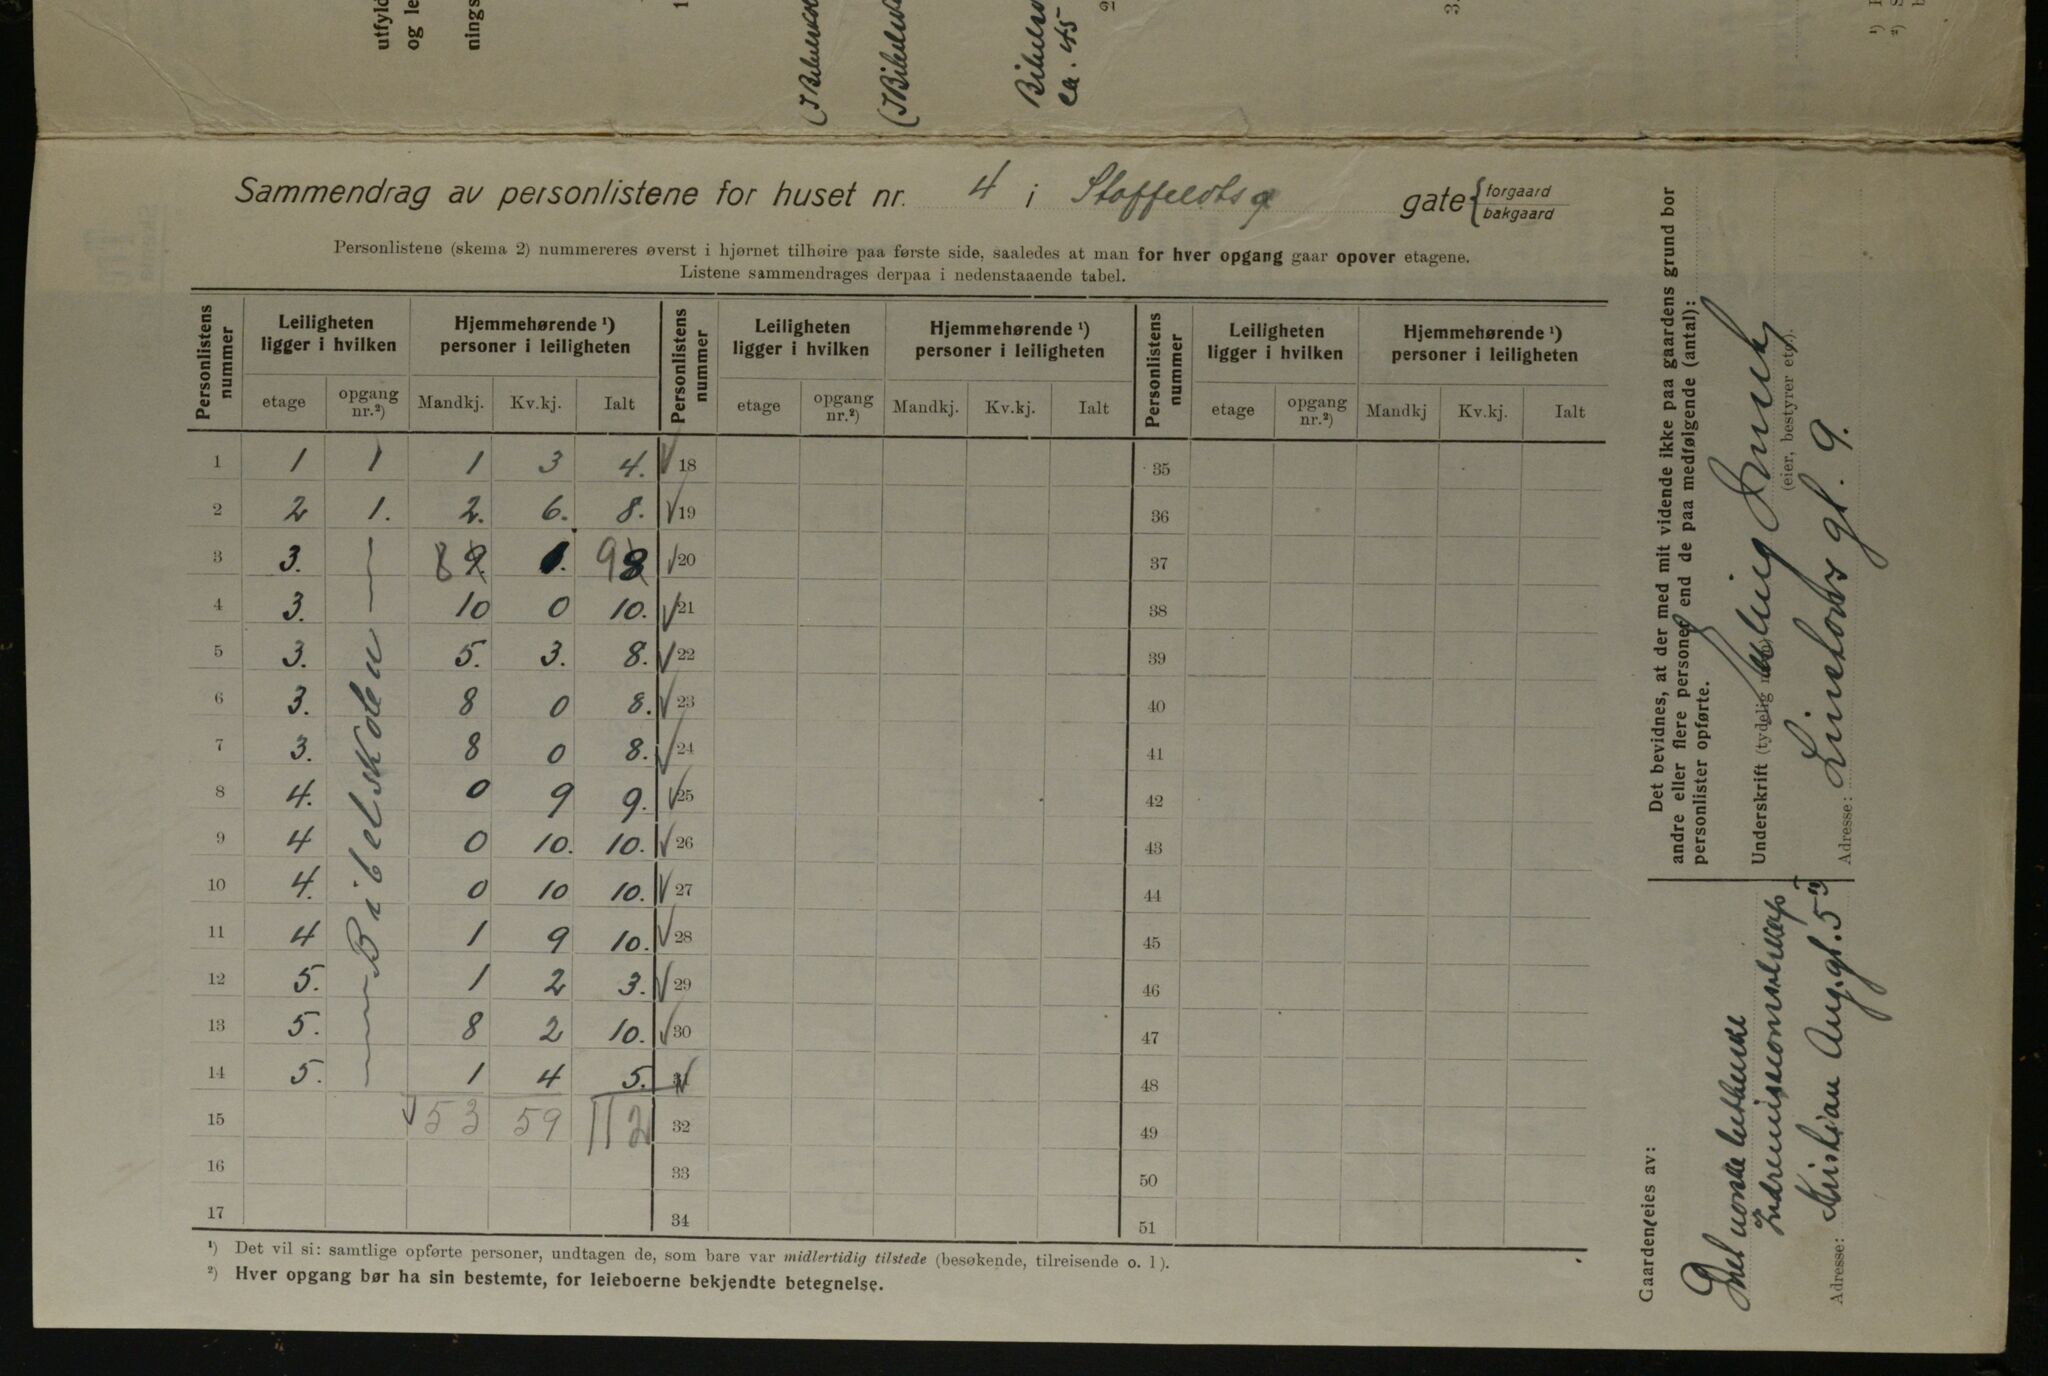 utfyld
og le
nings
1
(I Bibelsko
(I Bibelsko
Bibelsko
ca. 45
2
3.
¹)
²)
Sammendrag av personlistene for huset nr. 4 i Stoffeldtsg gate {forgaard bakgaard
Personlistene (skema 2) nummereres øverst i hjørnet tilhøire paa første side, saaledes at man for hver opgang gaar opover etagene.
Listene sammendrages derpaa i nedenstaaende tabel.
Personlistens nummer | Leiligheten ligger i hvilken | Hjemmehørende ¹) personer i leiligheten | Personlistens nummer | Leiligheten ligger i hvilken | Hjemmehørende ¹) personer i leiligheten | Personlistens nummer | Leiligheten ligger i hvilken | Hjemmehørende ¹) personer i leiligheten
etage | opgang nr.²) | Mandkj. | Kv.kj. | Ialt | etage | opgang nr.²) | Mandkj. | Kv.kj. | Ialt | etage | opgang nr.²) | Mandkj | Kv.kj. | Ialt
1 | 1 | 1 | 1 | 3 | 4. | √ 18 | 35
2 | 2 | 1. | 2. | 6. | 8. | √ 19 | 36
3 | 3. | 8 9. | 1. | 9 8 | √ 20 | 37
4 | 3. | 10 | 0 | 10. | √ 21 | 38
5 | 3. | 5. | 3. | 8. | √ 22 | 39
6 | 3. | 8 | 0 | 8. | √ 23 | 40
7 | 3. | 8 | 0 | 8. | √ 24 | 41
8 | 4. | 0 | 9 | 9. | √ 25 | 42
9 | 4 | 0 | 10. | 10. | √ 26 | 43
10 | 4. | 0 | 10 | 10. | √ 27 | 44
11 | 4 | 1 | 9 | 10. | √ 28 | 45
12 | 5. | 1 | 2 | 3. | √ 29 | 46
13 | 5. | 8 | 2 | 10. | √ 30 | 47
14 | 5. | 1 | 4 | 5. | √ 31 | 48
15 | √ 53 | 59 | 112 | 32 | 49
16 | 33 | 50
17 | 34 | 51
Bibelskolen
¹) Det vil si: samtlige opførte personer, undtagen de, som bare var midlertidig tilstede (besøkende, tilreisende o. l).
²) Hver opgang bør ha sin bestemte, for leieboerne bekjendte betegnelse.
Det bevidnes, at der med mit vidende ikke paa gaardens grund bor
andre eller flere personer end de paa medfølgende (antal):
personlister opførte.
Underskrift (tydelig
(eier, bestyrer etc.).
Adresse: Linstows gt. 9.
Gaarden eies av:
Det norske lutherske
Indremissionsselskap
Adresse: Kristian Aug. gt. 5